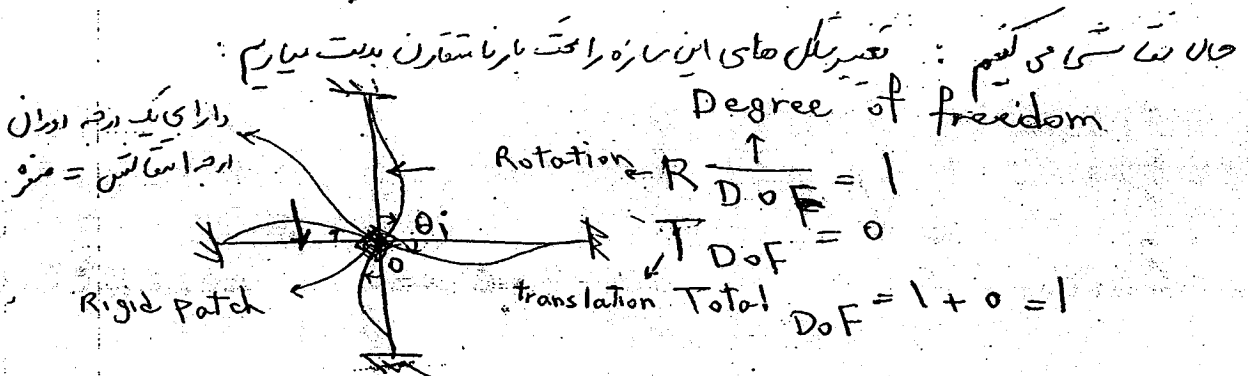 حال نقاشی می کنیم : تغییر شکل های این سازه را تحت بار نامتقارن بدست میاریم :
Degree of freedom
دارای یک درجه دوران
درجه انتقالش = صفر
Rotation R DoF = 1
θi
T DoF = 0
translation
o
Rigid patch
Total DoF = 1 + 0 = 1